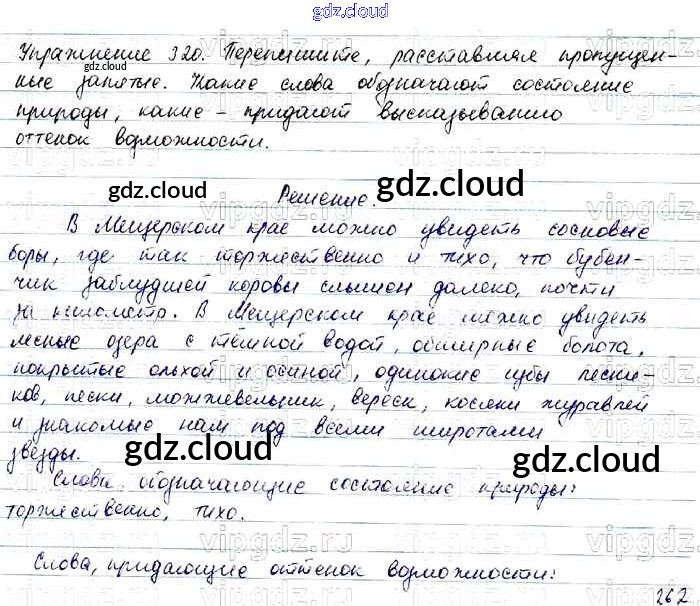 gdz.cloud
Упражнение 320. Перепишите, расставляя пропущен-
ные запятые. Какие слова обозначают состояние
природы, какие - придают высказыванию
оттенок возможности.
Решение.
В Мещерском крае можно увидеть сосновые
боры, где так торжественно и тихо, что бубен-
чик заблудшей коровы слышен далеко, почти
за километр. В Мещерском крае можно увидеть
лесные озера с тёмной водой, обширные болота,
покрытые ольхой и осиной, одинокие избы лесни-
ков, пески, можжевельник, вереск, косяки журавлей
и знакомые нам под всеми широтами
звезды.
Слова, обозначающие состояние природы:
торжественно, тихо.
Слова, придающие оттенок возможности:
262
gdz.cloud
gdz.cloud
gdz.cloud
gdz.cloud
gdz.cloud
gdz.cloud
gdz.cloud